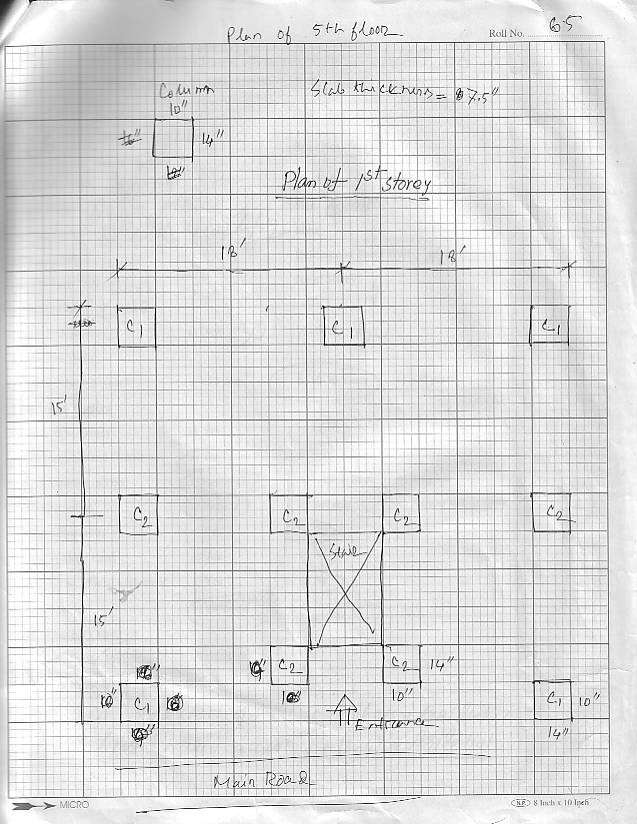 Plan of 5th floor
Roll No. 65
Column
10"
14"
Slab thickness = 7.5"
Plan of 1st storey
18' 18'
C1 C1 C1
15'
C2 C2 C2 C2
15'
C2 C2 14"
10"
C1 C1 10"
14"
Entrance
Main Road
MICRO
N.P. 8 Inch x 10 Inch